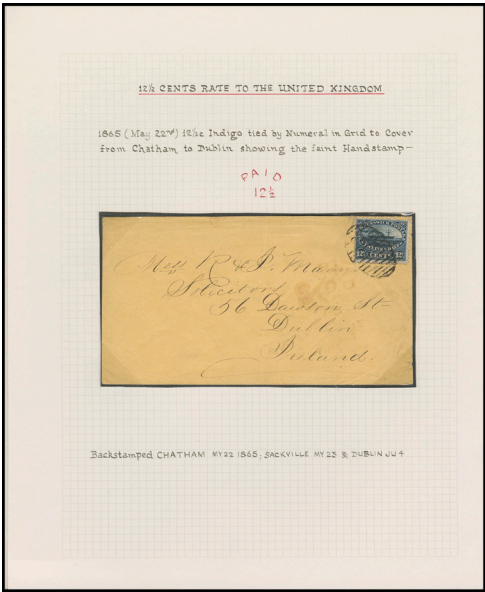 12½ CENTS RATE TO THE UNITED KINGDOM
1865 (May 22nd) 12½c Indigo tied by Numeral in Grid to Cover
from Chatham to Dublin showing the faint Handstamp—
PAID
12½
12½ CENTS 12½
Messrs R & J.
Solicitors
56 Dawson St
Dublin
Ireland.
Backstamped CHATHAM MY 22 1865, SACKVILLE MY 23 & DUBLIN JU 4